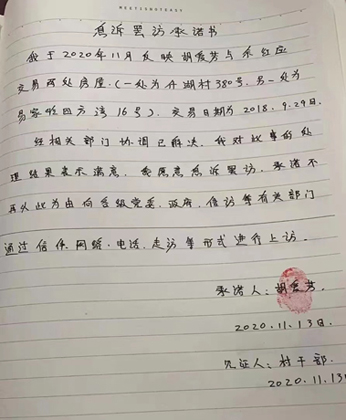 息诉罢访承诺书
我于2020年11月反映胡爱芳与余红应
交易两处房屋，(一处为丹湖村380号，另一处为
易家咀四方湾16号)，交易日期为2018.9.29日.
经相关部门协调已解决，我对此事的处
理结果表示满意，我愿意息诉罢访，承诺不
再以此为由向各级党委、政府、信访等有关部门
通过信件、网络、电话、走访等形式进行上访。
承诺人：胡爱芳.
2020.11.13日.
见证人：村干部.
2020.11.13